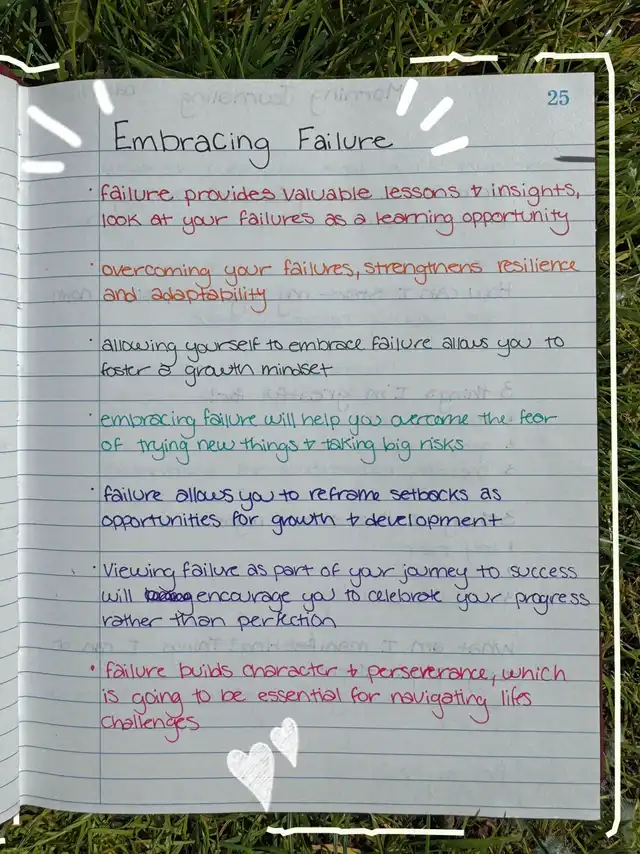 25
Embracing Failure
· failure provides valuable lessons + insights,
look at your failures as a learning opportunity
· overcoming your failures, strengthens resilience
and adaptability
· allowing yourself to embrace failure allows you to
foster a growth mindset
· embracing failure will help you overcome the fear
of trying new things + taking big risks
· failure allows you to reframe setbacks as
opportunities for growth + development
· Viewing failure as part of your journey to success
will encourage you to celebrate your progress
rather than perfection
· failure builds character + perseverance, which
is going to be essential for navigating lifes
challenges